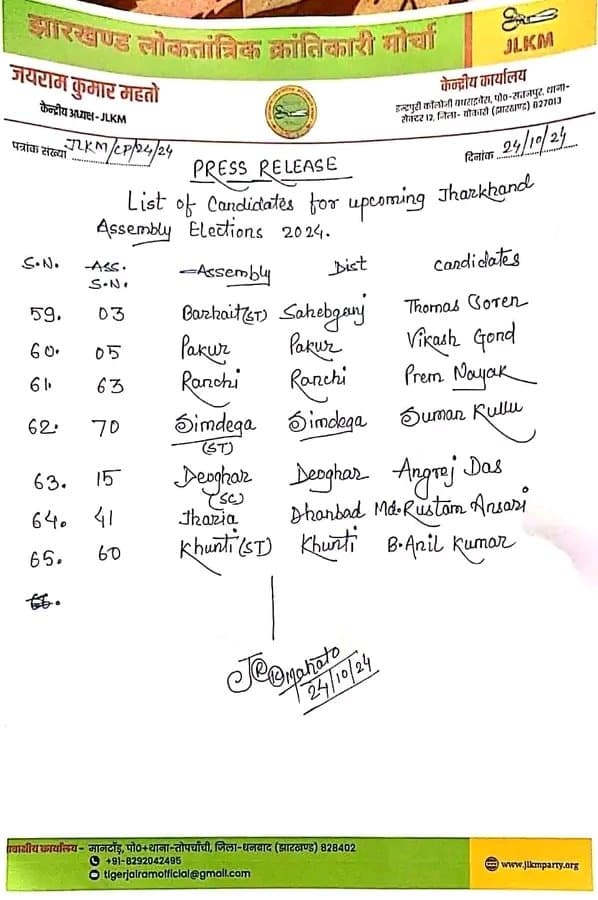 झारखण्ड लोकतांत्रिक क्रांतिकारी मोर्चा
JLKM
जयराम कुमार महतो
केन्द्रीय अध्यक्ष - JLKM
केन्द्रीय कार्यालय
इन्द्रपुरी कॉलोनी चासप्रवेश, पो०-सतनपुर, थाना-
सेक्टर 12, जिला- बोकारो (झारखण्ड) 827013
पत्रांक संख्या JLKM/CP/24/24
दिनांक 24/10/24
PRESS RELEASE
List of Candidates for upcoming Jharkhand
Assembly Elections 2024.
S.N. Ass. S.N. Assembly Dist Candidates
59. 03 Barhait (ST) Sahebganj Thomas Soren
60. 05 Pakur Pakur Vikash Gond
61. 63 Ranchi Ranchi Prem Nayak
62. 70 Simdega (ST) Simdega Suman Kullu
63. 15 Deoghar (SC) Deoghar Angrej Das
64. 41 Jharia Dhanbad Md. Rustam Ansari
65. 60 Khunti (ST) Khunti B. Anil Kumar
66.
Mahato
24/10/24
कार्यालय - मानटाँड़, पो०+थाना-तोपचाँची, जिला-धनबाद (झारखण्ड) 828402
+91-8292042495
tigerjairamofficial@gmail.com
www.jlkmparty.org